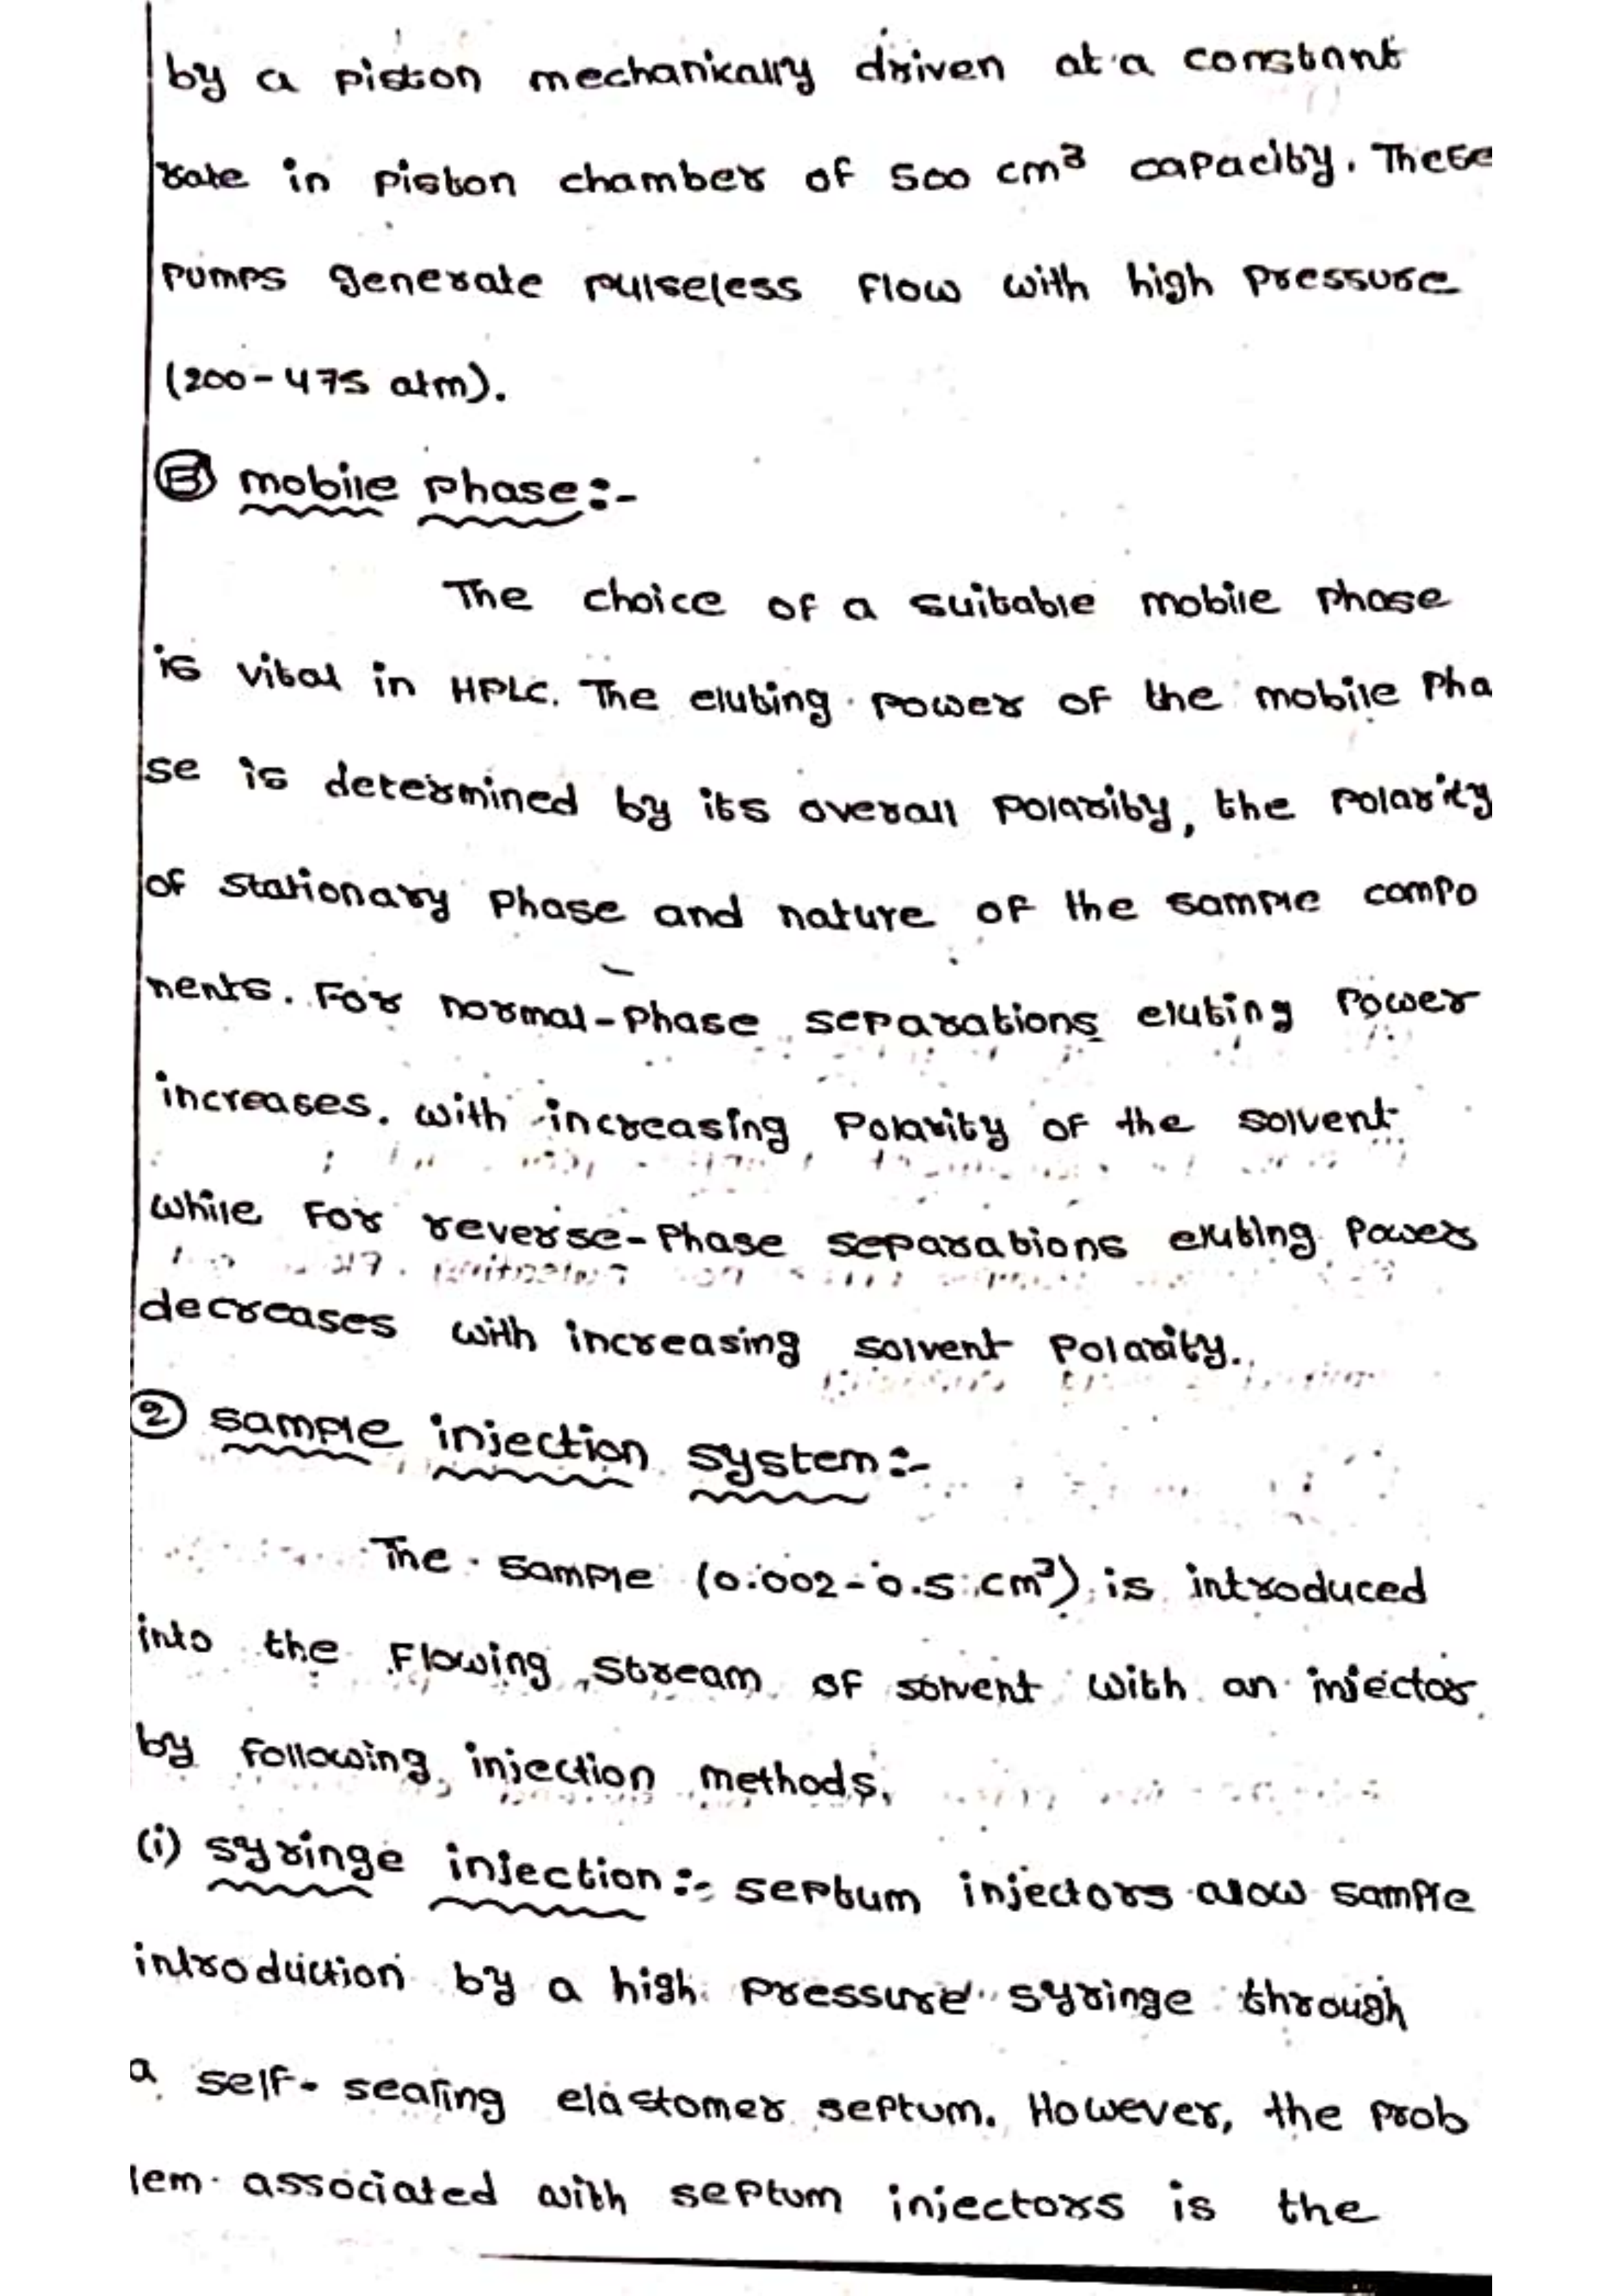 by a piston mechanically driven at a constant
rate in piston chamber of 500 cm³ capacity. These
pumps generate pulseless flow with high pressure
(200-475 atm).
Ⓑ mobile phase:-
The choice of a suitable mobile phase
is vital in HPLC. The eluting power of the mobile pha
se is determined by its overall polarity, the polarity
of stationary phase and nature of the sample compo
nents. For normal-phase separations eluting power
increases. with increasing polarity of the solvent
while for reverse-phase separations eluting power
decreases with increasing solvent polarity.
② sample injection system:-
The sample (0.002-0.5 cm³) is introduced
into the flowing stream of solvent with an injector
by following injection methods.
(i) syringe injection:- septum injectors alow sample
introduction by a high pressure syringe through
a self-sealing elastomer septum. However, the prob
lem associated with septum injectors is the